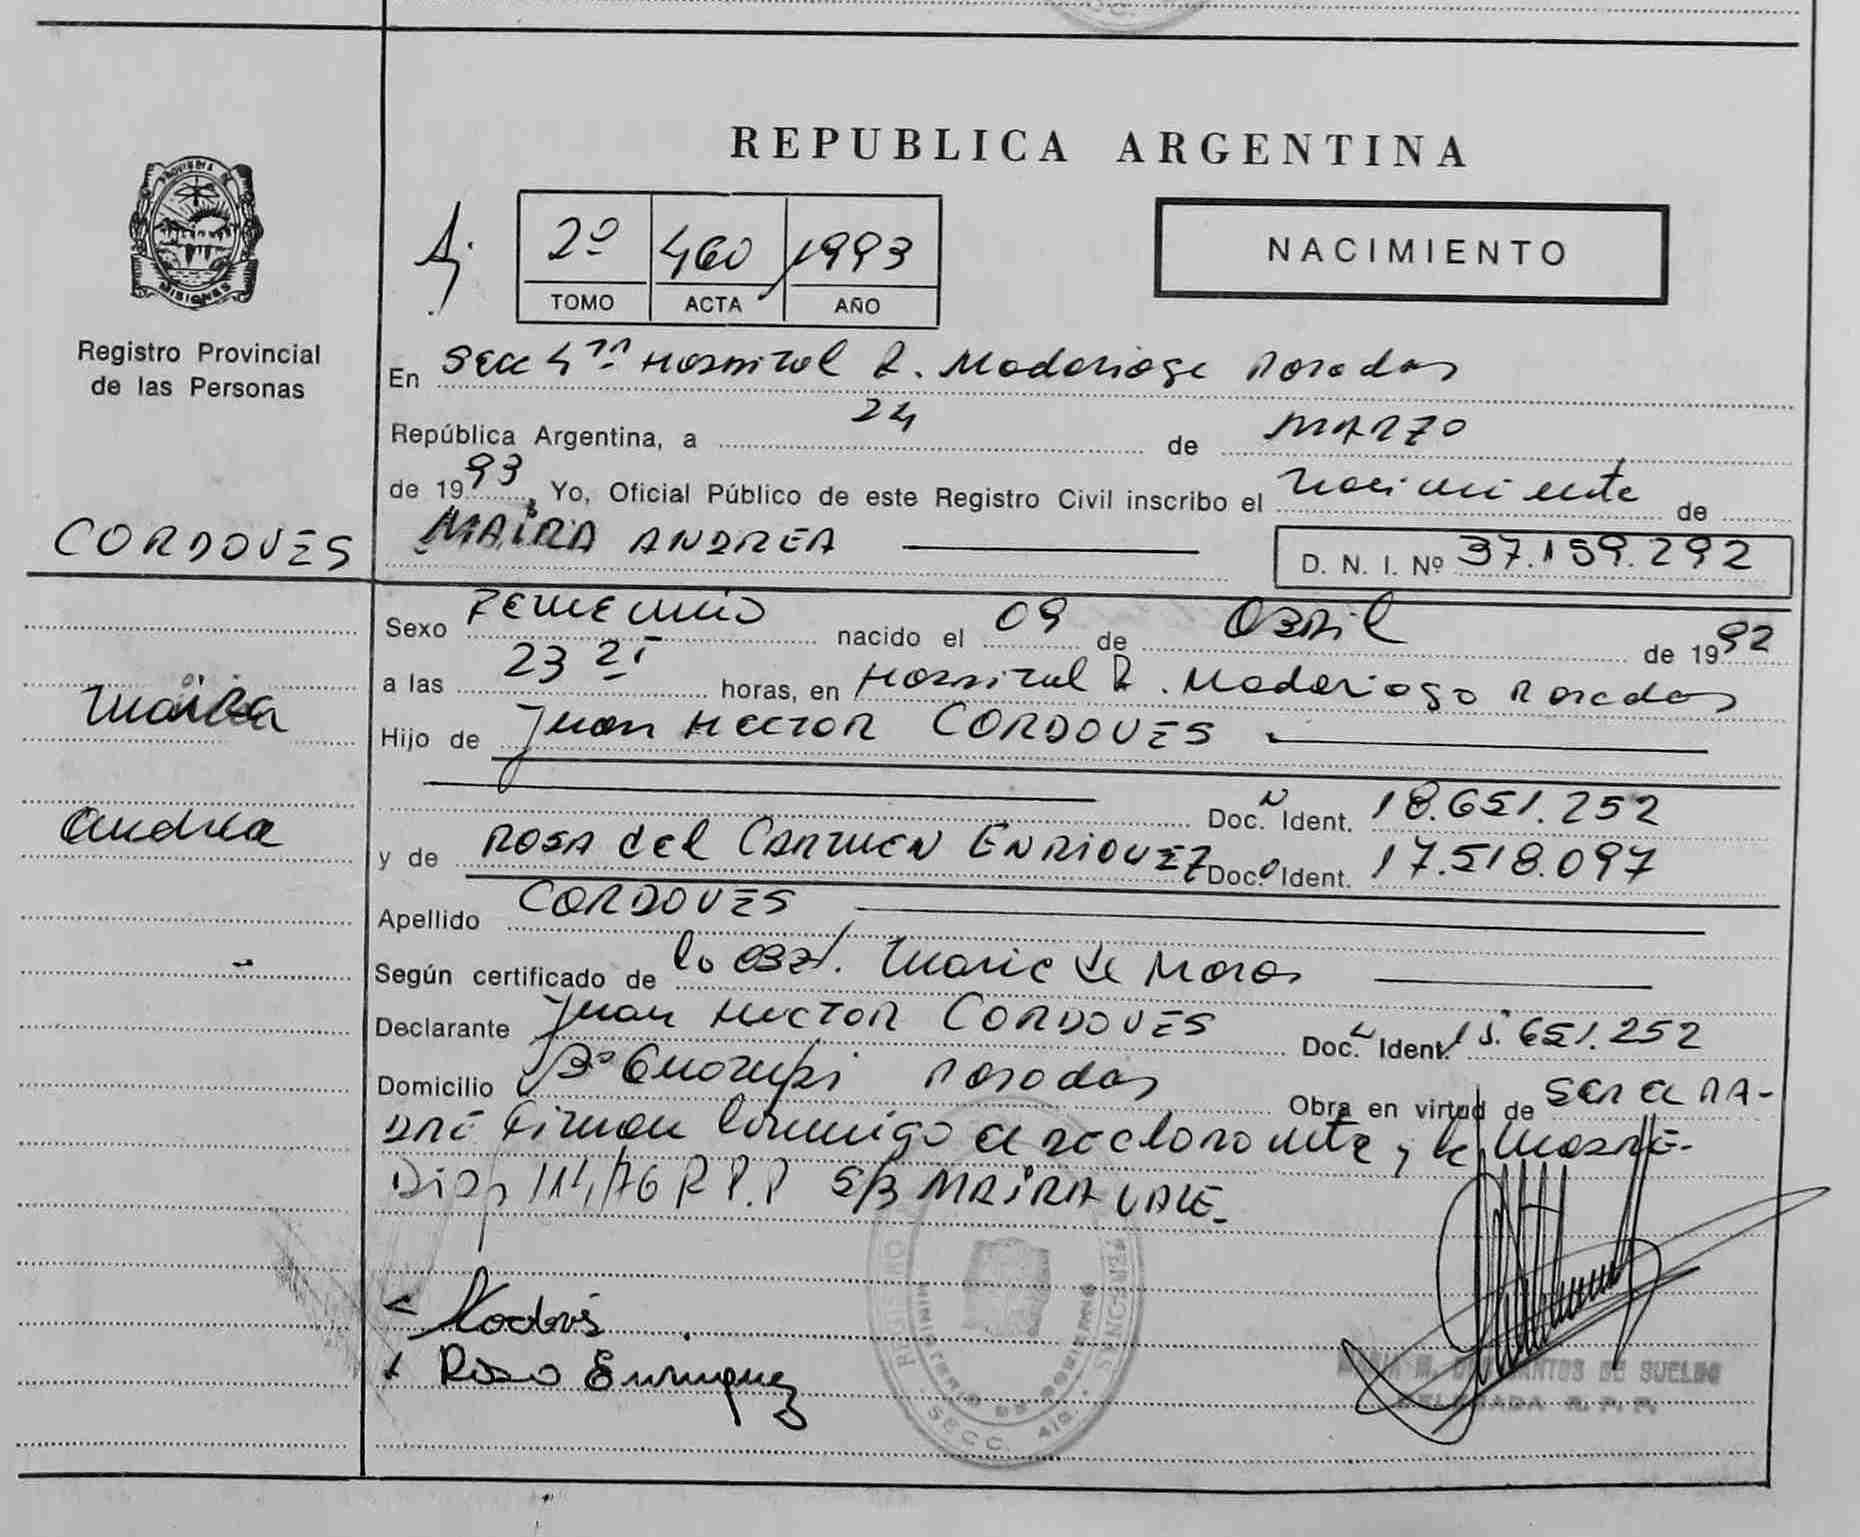 REPUBLICA ARGENTINA
PROVINCIA DE
MISIONES
Registro Provincial
de las Personas
2º 460 1993
TOMO ACTA AÑO
NACIMIENTO
En Secc 4ta Hospital R. Madariaga Posadas
República Argentina, a 24 de MARZO
de 1993, Yo, Oficial Público de este Registro Civil inscribo el nacimiento de
CORDOVES
MAIRA ANDREA
D. N. I. Nº 37.159.292
Maira
Andrea
Sexo FEMENINO nacido el 09 de ABRIL de 1992
a las 23 horas, en Hospital R. Madariaga Posadas
Hijo de Juan HECTOR CORDOVES
Doc. Ident. 18.651.252
y de ROSA del CARMEN ENRIQUEZ Doc. Ident. 17.518.097
Apellido CORDOVES
Según certificado de la obst. Maria de Moras
Declarante Juan HECTOR CORDOVES Doc. Ident. 18.651.252
Domicilio Bº Posadas Obra en virtud de SER el PA-
DRE firman conmigo el declarante y la madre-
Disp 114/76 R.P.P S/B MAIRA VALE-
Rosa Enriquez
REGISTRO PERSONAS
MINISTERIO DE GOBIERNO
SECC. 4ta.
DE SUELDO
DELEGADA R. P. P.